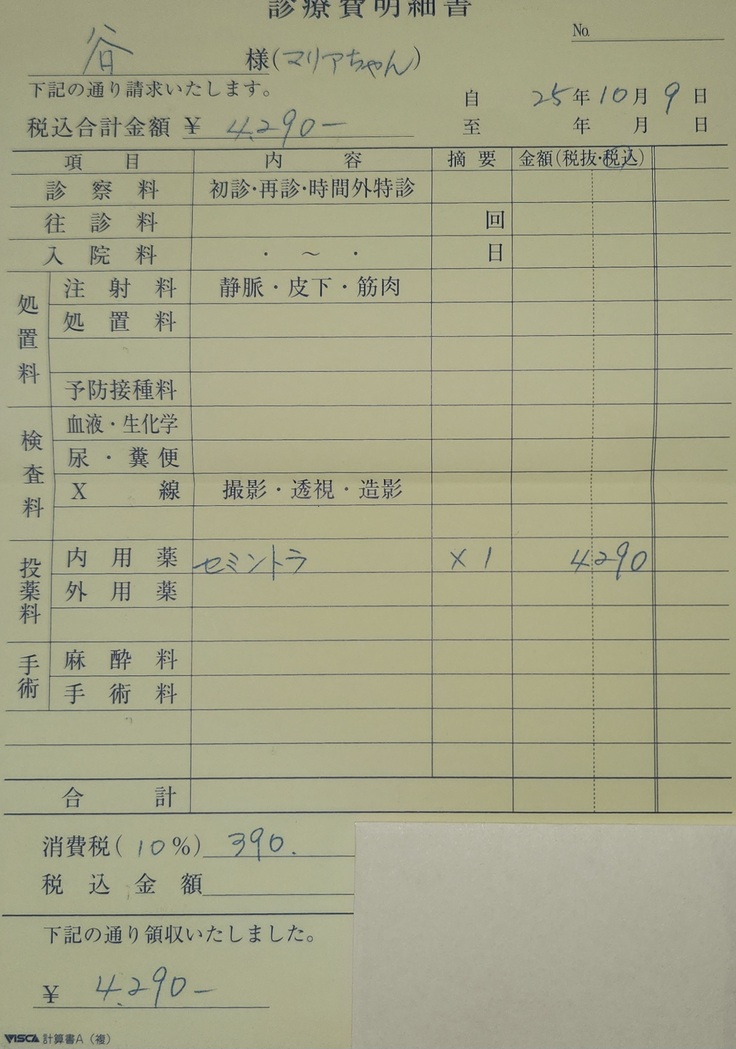 診療費明細書
No.
谷 様(マリアちゃん)
下記の通り請求いたします。
自 25年10月9日
税込合計金額 ¥ 4,290-
至 年 月 日
項目 内容 摘要 金額(税抜・税込)
診察料 初診・再診・時間外特診
往診料 回
入院料 ・ ～ ・ 日
処置料
注射料 静脈・皮下・筋肉
処置料
予防接種料
検査料
血液・生化学
尿・糞便
X線 撮影・透視・造影
投薬料
内用薬 セミントラ ×1 4290
外用薬
手術
麻酔料
手術料
合計
消費税(10%) 390.
税込金額
下記の通り領収いたしました。
¥ 4,290-
VISCA 計算書A(複)